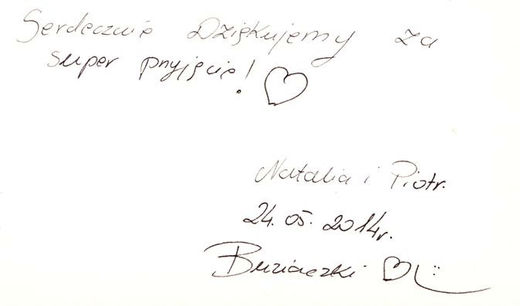 Serdecznie Dziękujemy za
super przyjęcie! ♡
Natalia i Piotr.
24.05.2014r.
Buziaczki ♡